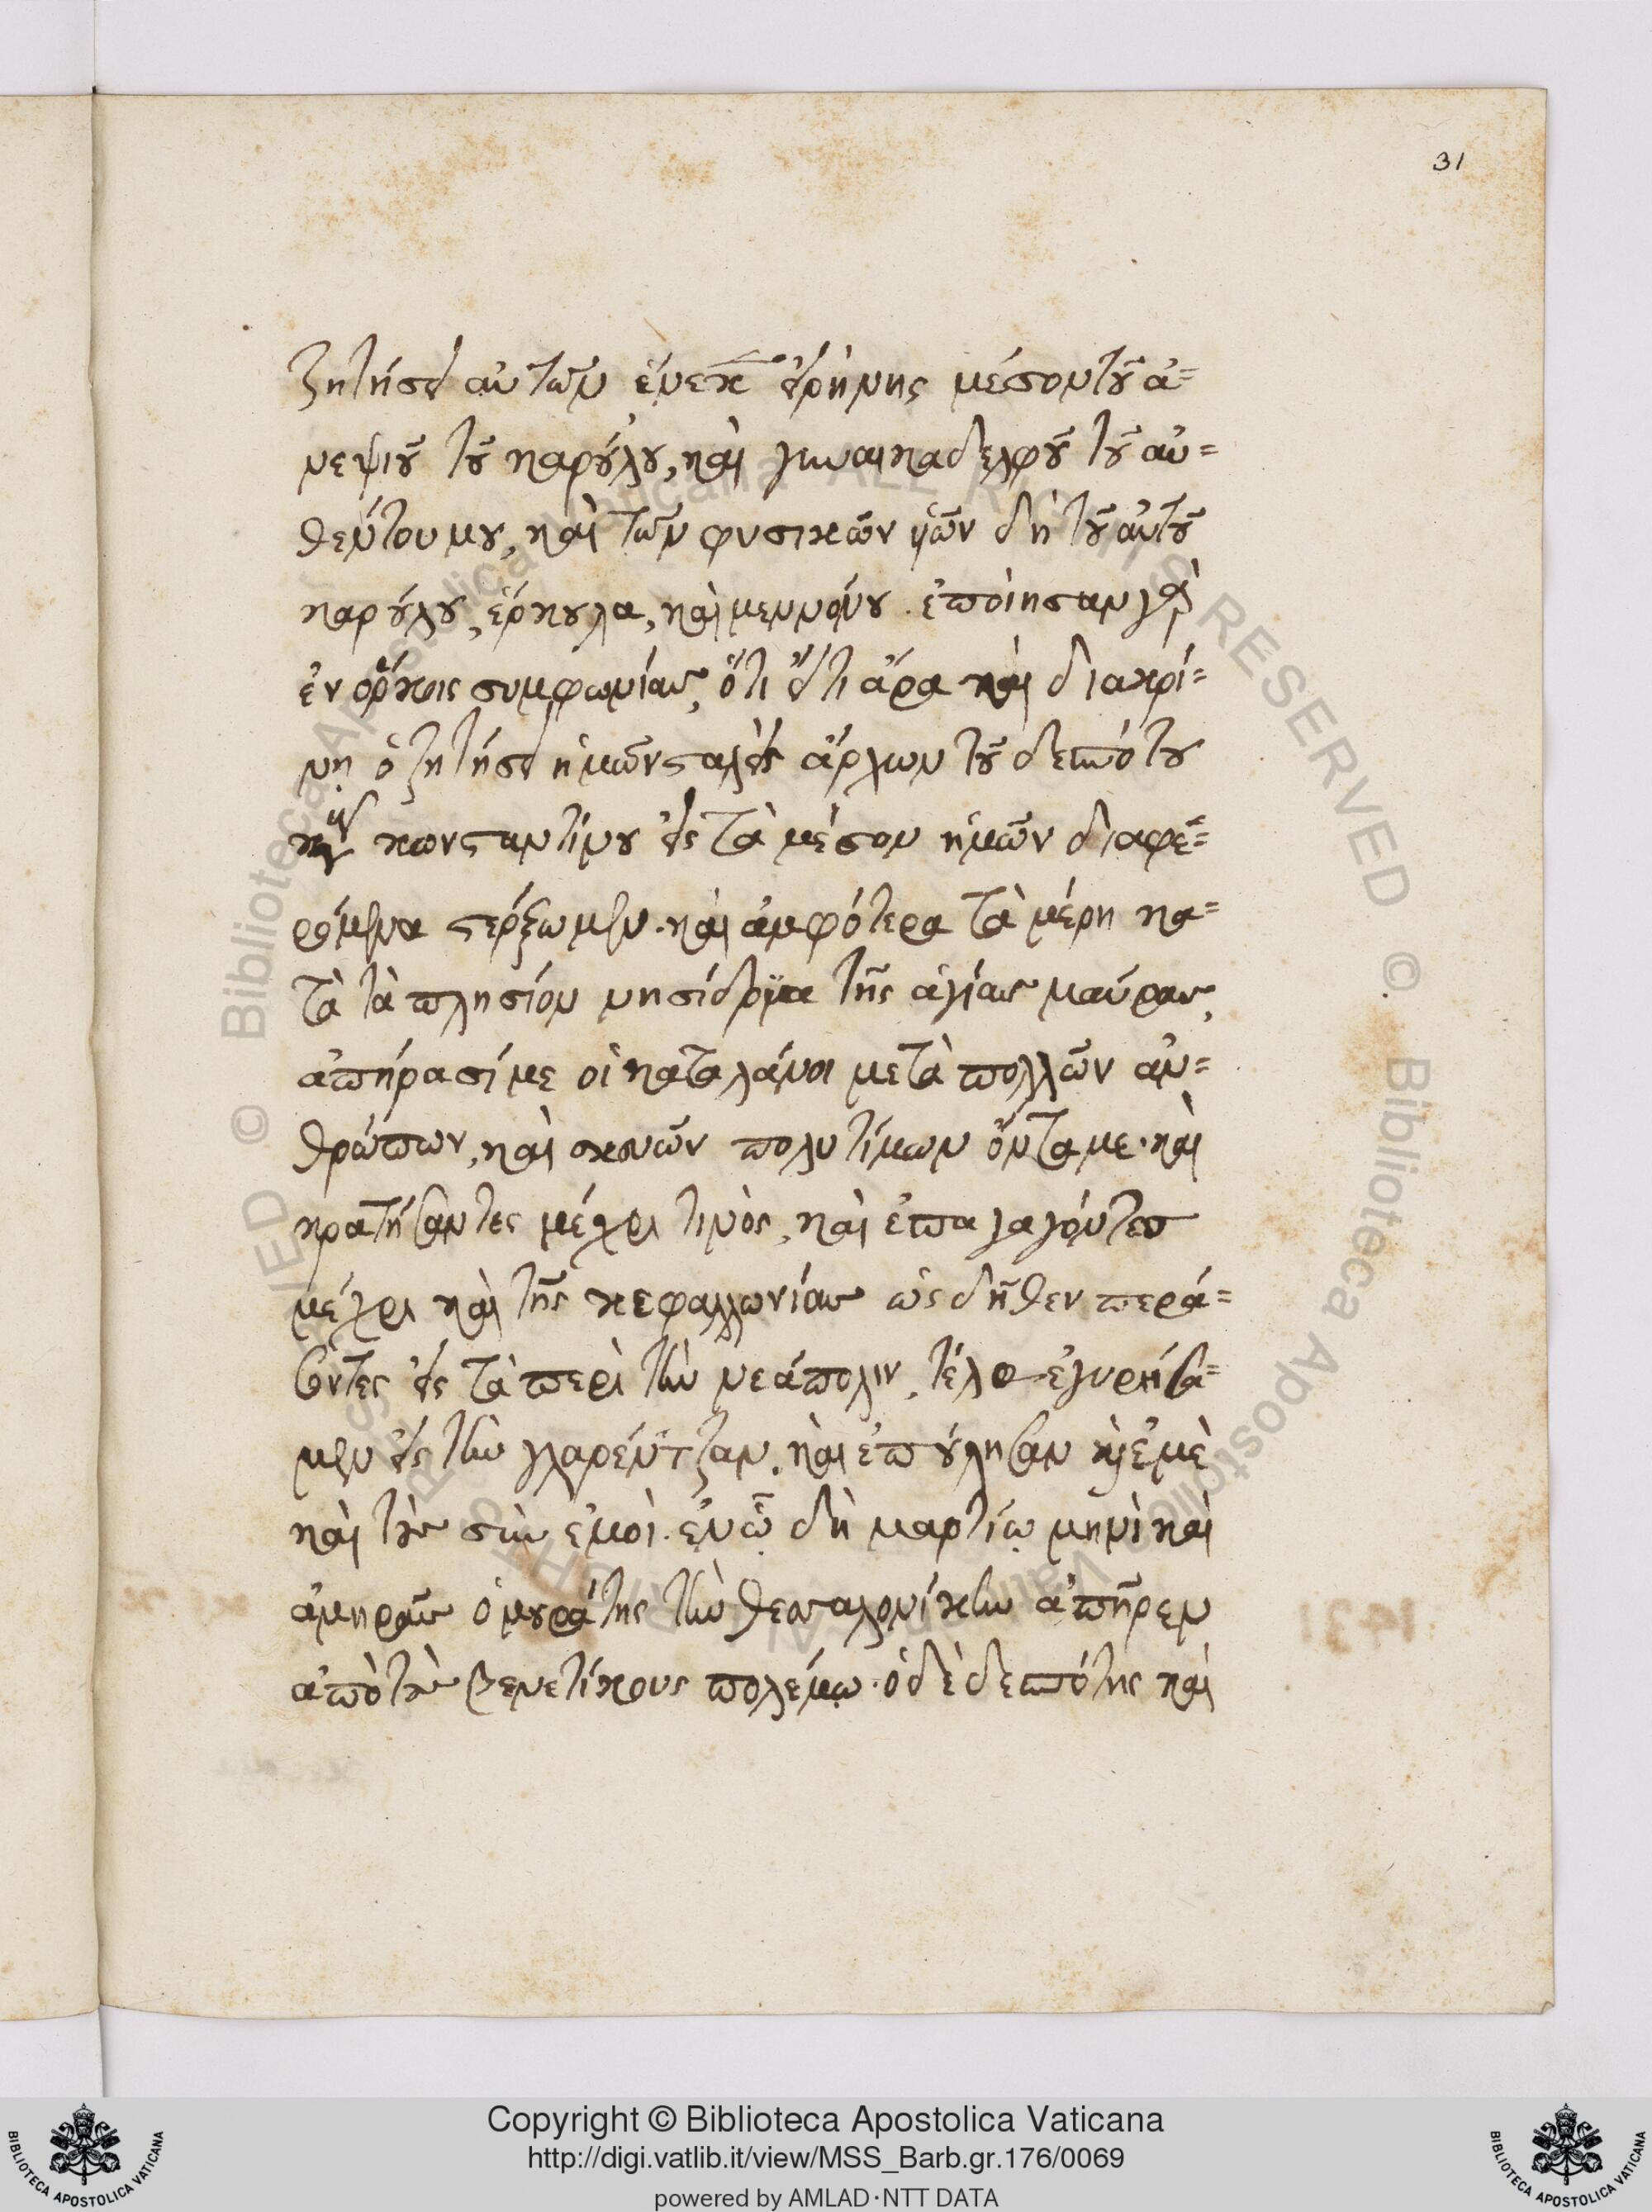 31
ζητήσει αὐτῶν ἕνεκεν εἰρήνης μέσον τοῦ ἀ=
νεψιοῦ τοῦ καρούλου, καὶ γυναικαδελφοῦ τοῦ αὐ=
θέντου μου, καὶ τῶν φυσικῶν υἱῶν δὴ τοῦ αὐτοῦ
καρούλου, ἑρκουλα, καὶ μεννούνου. ἐποίησαν γὰρ
ἐν ὅρκοις συμφωνίας, ὅτι εἴτι ἄρα καὶ διακρί=
νῃ ὁ ζητήσει ἡμῶν σταλεὶς ἄρχων τοῦ δεσπότου
κὺρ κωνσταντίνου εἰς τὰ μέσον ἡμῶν διαφε=
ρόμενα στέρξωμεν. καὶ ἀμφότερα τὰ μέρη κα=
τὰ τὰ πλησίον νησίδρια τῆς ἁγίας μαύρας,
ἀπήρασί με οἱ καταλάνοι μετὰ πολλῶν ἀν=
θρώπων, καὶ σκευῶν πολυτίμων ὄντα με. καὶ
κρατήσαντες μέχρι τινὸς, καὶ ἐπαγαγόντες
μέχρι καὶ τῆς κεφαλλωνίας ὡς δῆθεν περά=
σοντες εἰς τὰ περὶ τὴν νεάπολιν, τέλος ἐγυρήσα=
μεν εἰς τὴν γλαρέντζαν. καὶ ἐπούλησαν καὶ ἐμὲ
καὶ τοὺς σὺν ἐμοὶ. ἐν ᾧ δὴ μαρτίῳ μηνὶ καὶ
ἀμηρᾶς ὁ μουράτης τὴν θεσσαλονίκην ἀπῆρεν
ἀπὸ τοὺς βενετίκους πολέμῳ. ὁ δὲ δεσπότης καὶ
Copyright © Biblioteca Apostolica Vaticana
http://digi.vatlib.it/view/MSS_Barb.gr.176/0069
powered by AMLAD·NTT DATA
BIBLIOTECA APOSTOLICA VATICANA
BIBLIOTECA APOSTOLICA VATICANA